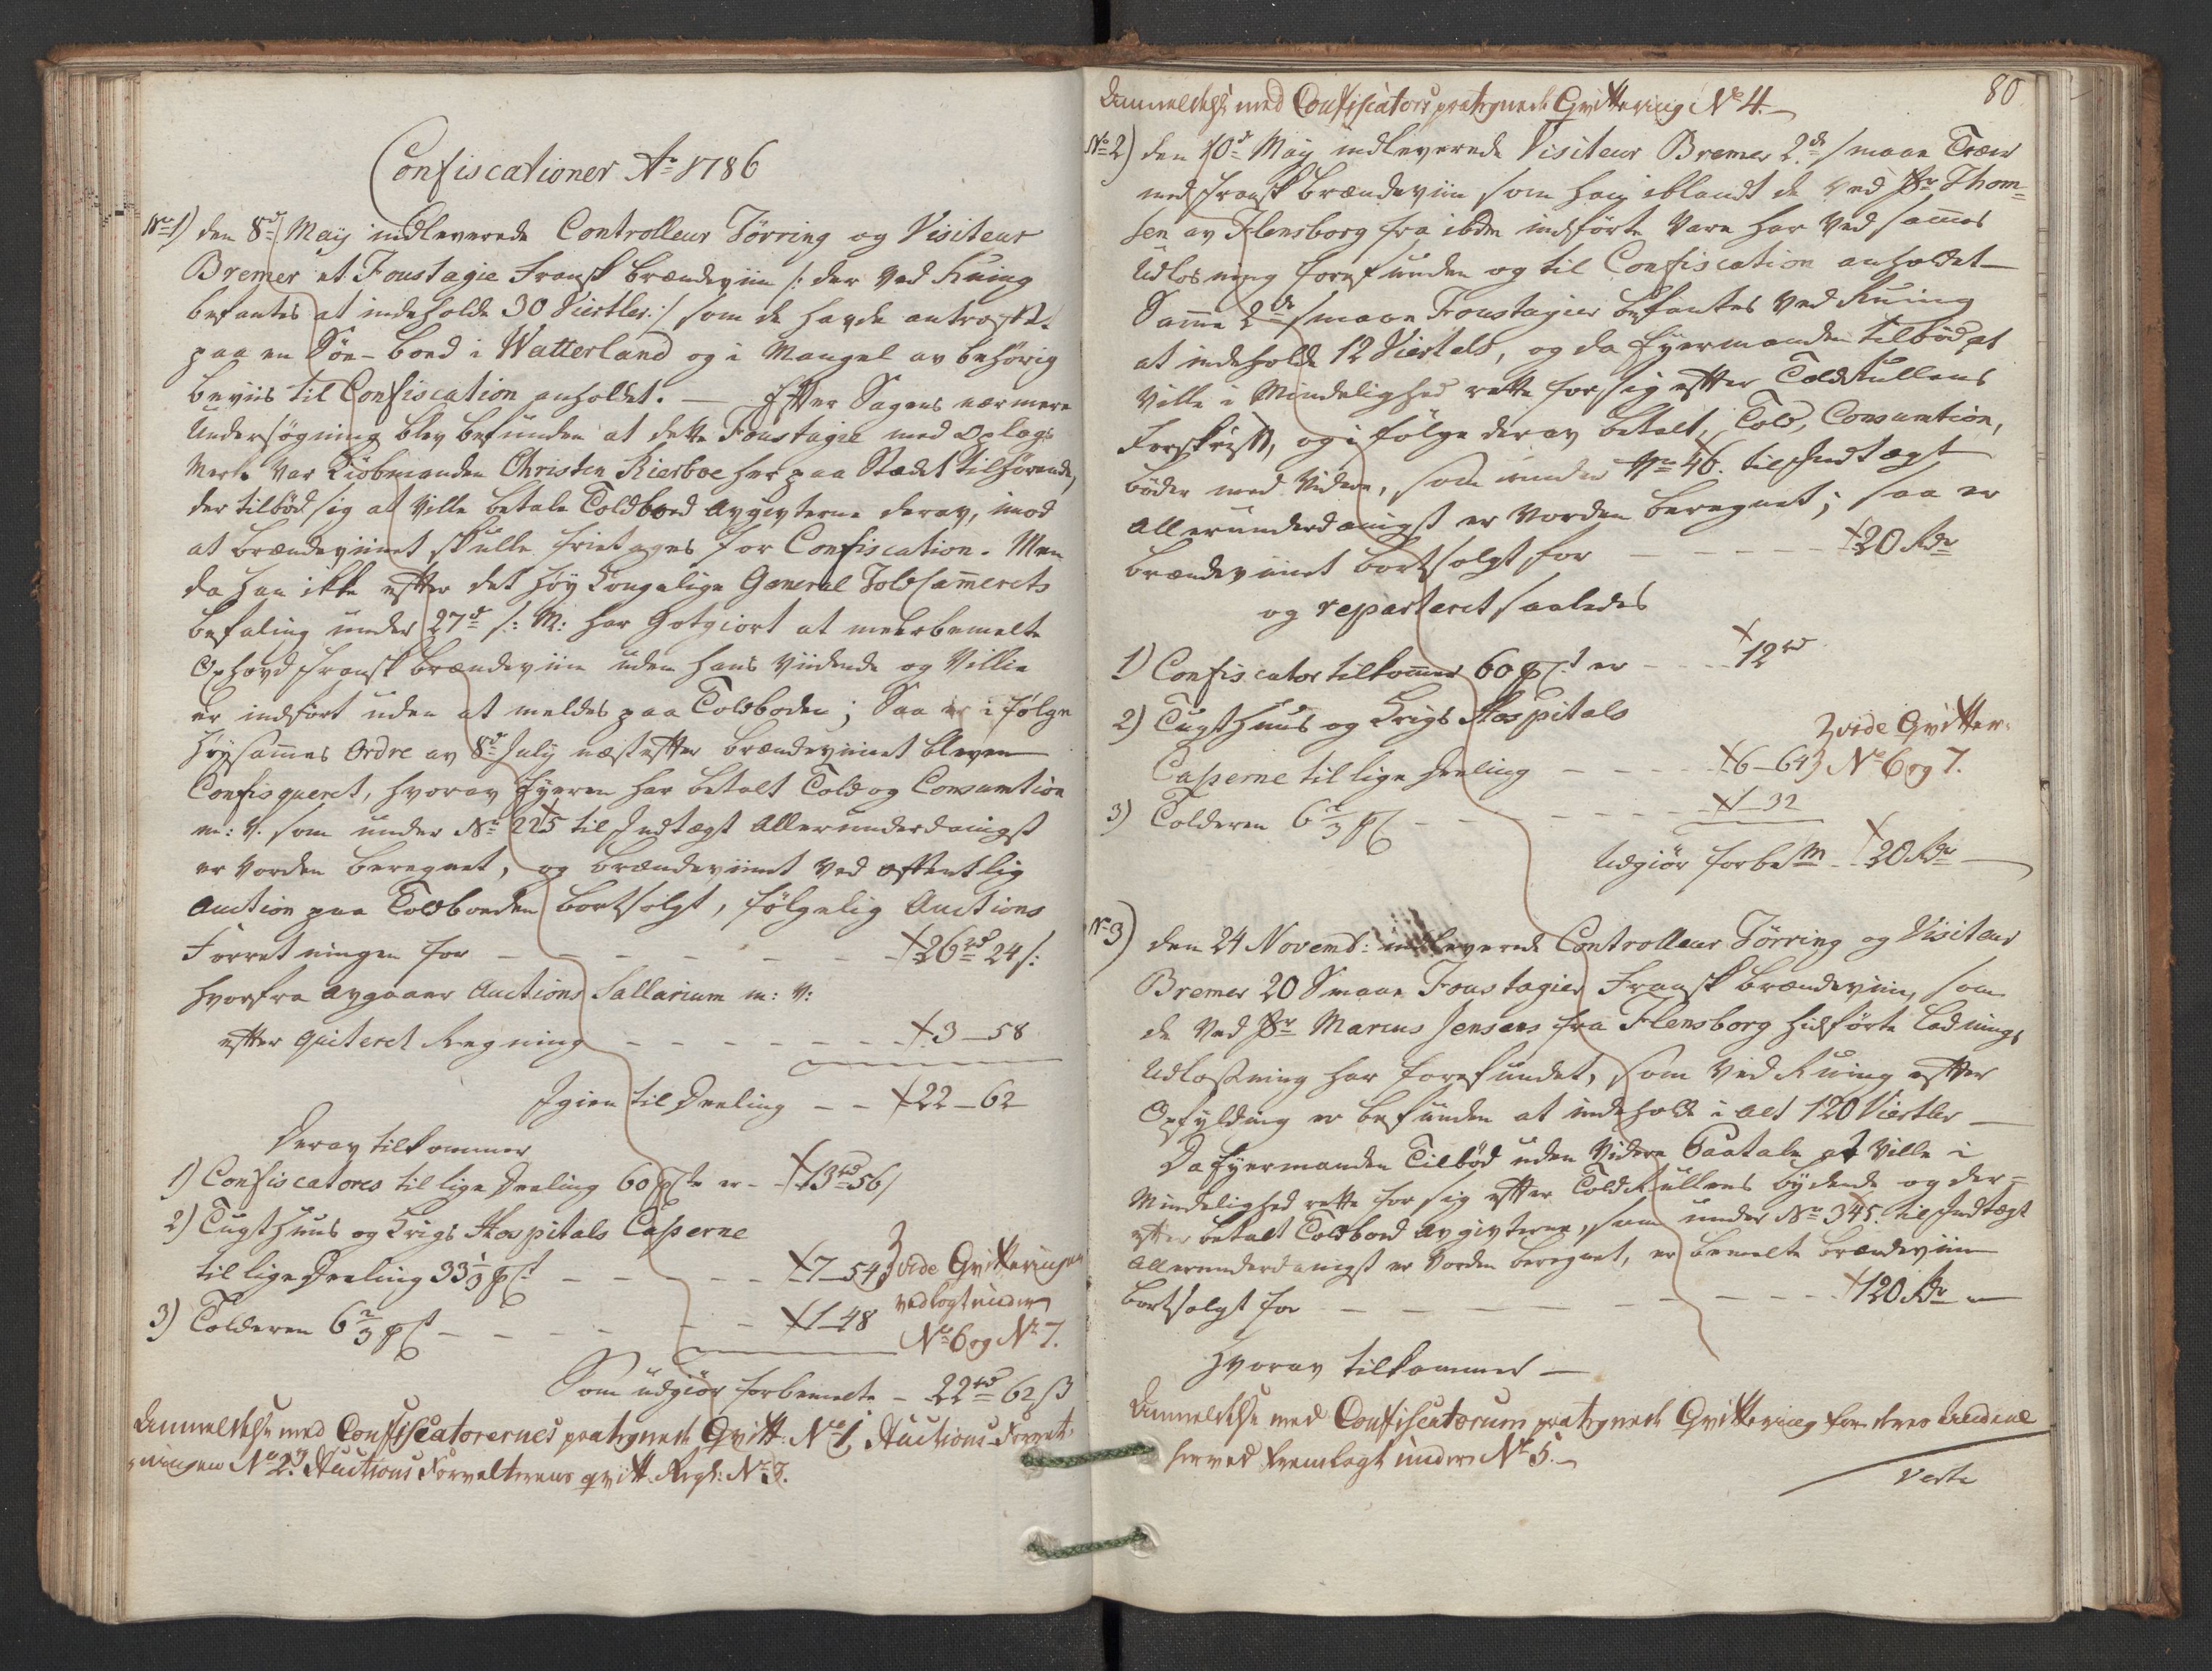 Confiscationer Ao 1786
No 1) den 8d May indleverede Controlleur Törring og Visiteur
Bremer et Foustagie Fransk Brændeviin /: der ved Kuing
befantes at indeholde 30 Viertler :/ som de havde antroffet
paa en Söe-boed i Watterland og i Mangel av behörig
beviis til Confiscation anholdet. — Efter Sagens nærmere
Undersögning blev befunden at dette Foustagie med Oplags
Merke var Kiöbmanden Christen Kierboe her paa Stædet tilhörende,
der tilböd sig at ville betale Toldboed Avgivterne derav, imod
at Brændeviinet skulle frietages for Confiscation. Men
da han ikke efter det Höy Kongelige General Told Cammerets
befaling under 27d /: M: har Gotgiort at meerbemelte
Oxhovd Fransk Brændeviin uden hans Viidende og Villie
er indfört uden at meldes paa Toldboden; Saa er i Fölge
Höysammes Ordre av 8d July næstefter Brændeviinet bleven
Confisqueret, hvorav Eyeren har betalt Told og Consumtion
m: v. som under No 225 til Indtægt Allerunderdanigst
er vorden beregnet, og Brændeviinet ved offentlig
Auction paa Toldboeden bortsolgt, fölgelig Auctions
Forretningen for — — — — — — 26rd 24 s:
hvorfra avgaaer Auctions Sallarium m: v:
efter quiteret Regning — — — — — 3 – 58
Igien til Deeling — — 22 – 62
Derav tilkommer
1) Confiscatores til lige Deeling 60 pCto er — 13rd 56 s
2) Tugthuus og Krigs Hospitals Casserne
til lige Deeling 33 1/3 pCt — — — 7 – 54 } vide Qvitteringen
vedlagt under
3) Tolderen 6 2/3 pCt — — — — 1 – 48
No 6 og No 7.
Som udgiör forbemelte — 22rd 62 ß
Anmeldelse med Confiscatorernes paategnede Qvitt: No 1, Auctions-Forret-
ningen No 2. og Auctions Forvalterens qvitt. Regn: No 3.
80
Anmeldelse med Confiscators paategnede Qvittering No 4. —
No 2) den 10d May indleverede Visiteur Bremer 2de smaae Træer
med Fransk Brændeviin som han iblandt de ved Sr Thom-
sen av Flensborg fra ibdm indförte Vare har ved sammes
Udlosning forefunden og til Confiscation anholdet —
Samme 2de smaae Foustagier befantes ved Kuing
at indeholde 12 Viertels, og da Eyermanden tilböd at
ville i Mindelighed rette for sig efter Toldrullens
Forskrift, og i fölge derav betalt, Told, Consumtion,
böder med videre, som under No 46. til Indtægt
Allerunderdanigst er vorden beregnet; saa er
Brændeviinet bortsolgt for — — — — 20 Rdr
og reparteret saaledes
1) Confiscator tilkommer 60 pCt er — — 12rd
2) Tugthuus og Krigs Hospitals
Casserne til lige Deeling — — — 6 – 64 } vide Qvitter:
No 6 og 7.
3) Tolderen 6 2/3 pC — — — — — 1 – 32
Udgiör forbem — 20 Rdr —
No 3) den 24 Novemb: indleverede Controlleur Törring og Visiteur
Bremer 20 Smaae Foustagier Fransk Brændeviin, som
de ved Sr Marcus Jensens fra Flensborg hidförte Ladnings
Udlosning har forefundet, som ved Kuing efter
Opfylding er befunden at indeholde i alt 120 Viertler —
Da Eyermanden Tilböd uden Videre Paatale at ville i
Mindelighed rette for sig efter Toldrullens bydende og der-
efter betalt Toldboed Avgivterne, som under No 345. til Indtægt
Allerunderdanigst er vorden beregnet, er bemelte Brændeviin
bortsolgt for — — — — — — — 120 Rdr —
hvorav tilkommer —
Anmeldelse med Confiscatorum paategnede Qvittering for deres Andeel
herved fremlagt under No 5. —
Verte